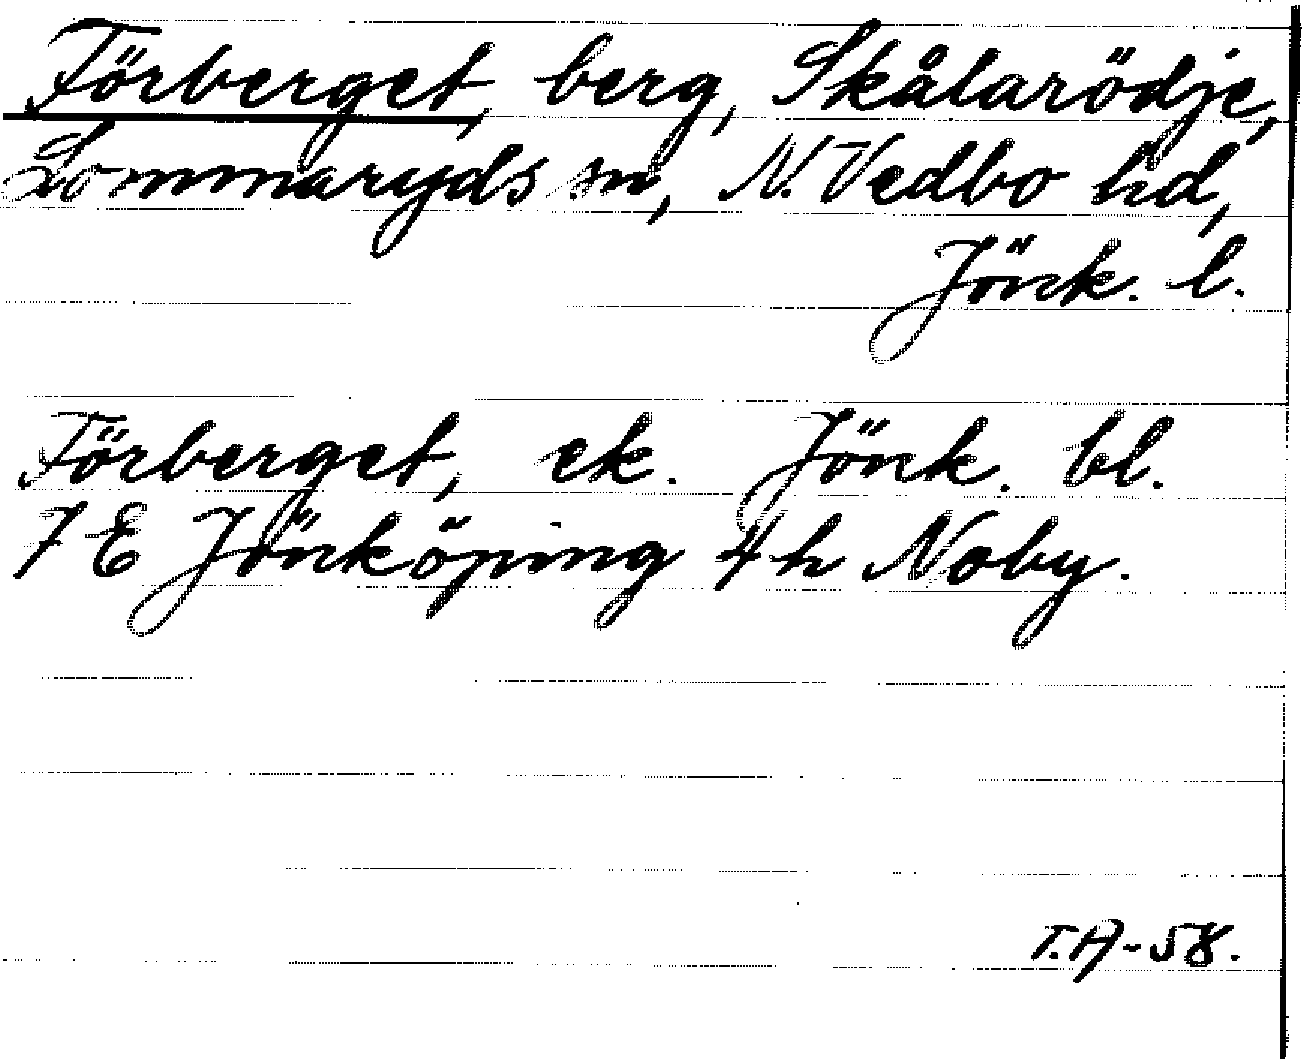 Förberget, berg, Skålarödje,
Lommaryds sn, N. Vedbo hd,
Jönk. l.
Förberget, ek. Jönk. bl.
7 E Jönköping 4h Noby.
T.A-58.